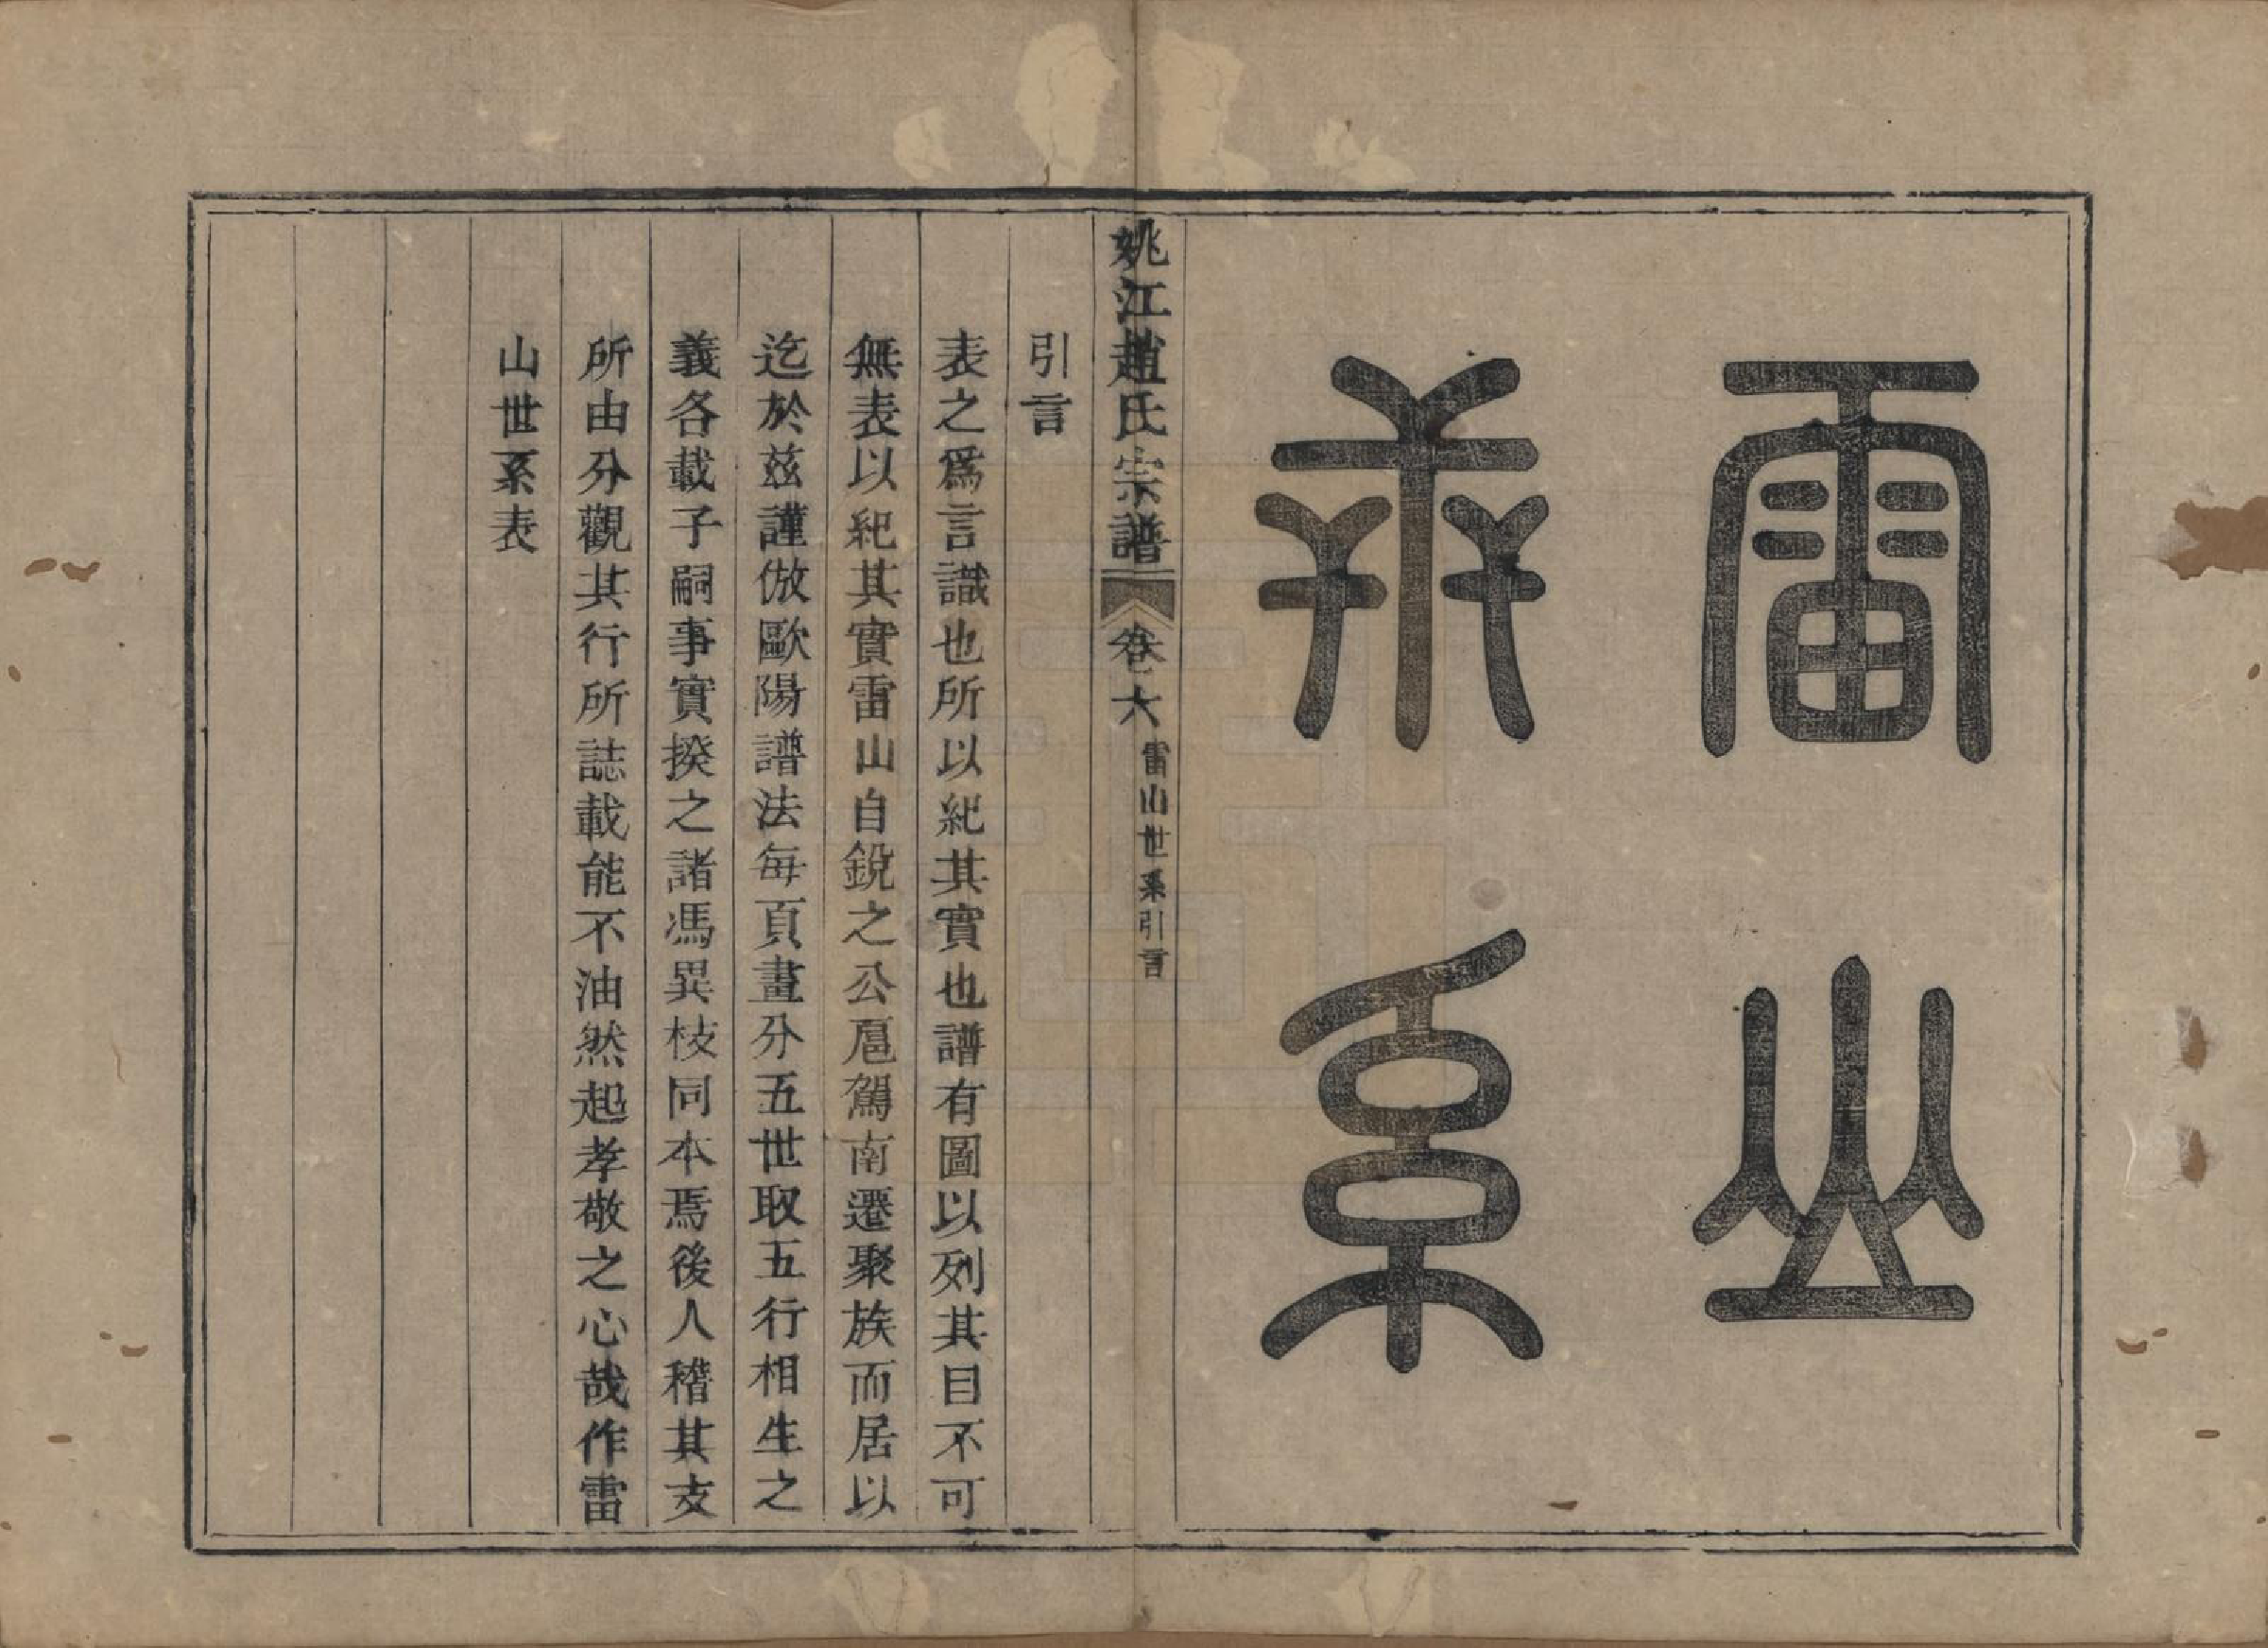 雷山
世系
姚江趙氏宗譜 卷六 雷山世系引言
引言
表之爲言識也所以紀其實也譜有圖以列其目不可
無表以紀其實雷山自銳之公扈駕南遷聚族而居以
迄於茲謹倣歐陽譜法每頁畫分五世取五行相生之
義各載子嗣事實揆之諸馮異枝同本焉後人稽其支
所由分觀其行所誌載能不油然起孝敬之心哉作雷
山世系表